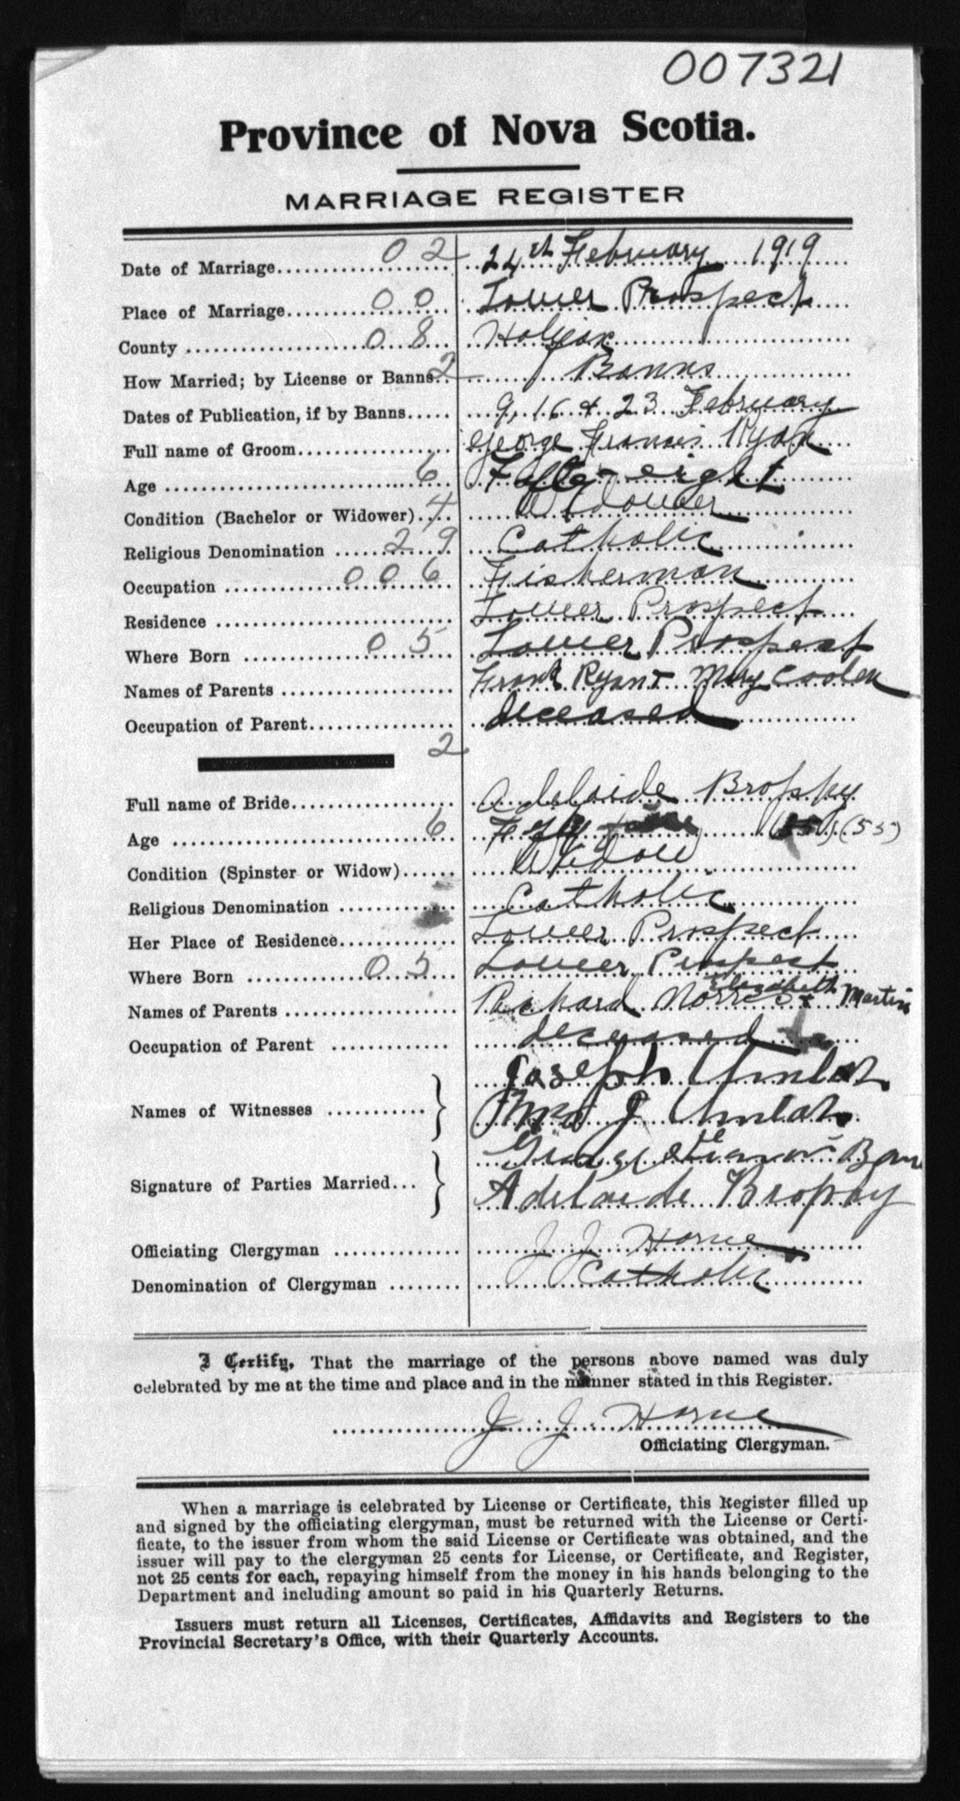 007321
Province of Nova Scotia.
MARRIAGE REGISTER
Date of Marriage 02 24th February 1919
Place of Marriage 00 Lower Prospect
County 08 Halifax
How Married; by License or Banns 2 Banns
Dates of Publication, if by Banns 9, 16 & 23 February
Full name of Groom George Francis Ryan
Age 6 Fifty-eight
Condition (Bachelor or Widower) 4 Widower
Religious Denomination 29 Catholic
Occupation 006 Fisherman
Residence Lower Prospect
Where Born 05 Lower Prospect
Names of Parents Frank Ryan + Mary Coolen
Occupation of Parent deceased
2
Full name of Bride Adelaide Brophy
Age 6 Fifty (55)
Condition (Spinster or Widow) Widow
Religious Denomination Catholic
Her Place of Residence Lower Prospect
Where Born 05 Lower Prospect
Names of Parents Richard Norris + Elizabeth Martin
Occupation of Parent deceased
Names of Witnesses Joseph
Mrs J
Signature of Parties Married
Adelaide Brophy
Officiating Clergyman J. J. Horne
Denomination of Clergyman Catholic
I Certify, That the marriage of the persons above named was duly
celebrated by me at the time and place and in the manner stated in this Register.
J. J. Horne
Officiating Clergyman.
When a marriage is celebrated by License or Certificate, this Register filled up
and signed by the officiating clergyman, must be returned with the License or Certi-
ficate, to the issuer from whom the said License or Certificate was obtained, and the
issuer will pay to the clergyman 25 cents for License, or Certificate, and Register,
not 25 cents for each, repaying himself from the money in his hands belonging to the
Department and including amount so paid in his Quarterly Returns.
Issuers must return all Licenses, Certificates, Affidavits and Registers to the
Provincial Secretary's Office, with their Quarterly Accounts.